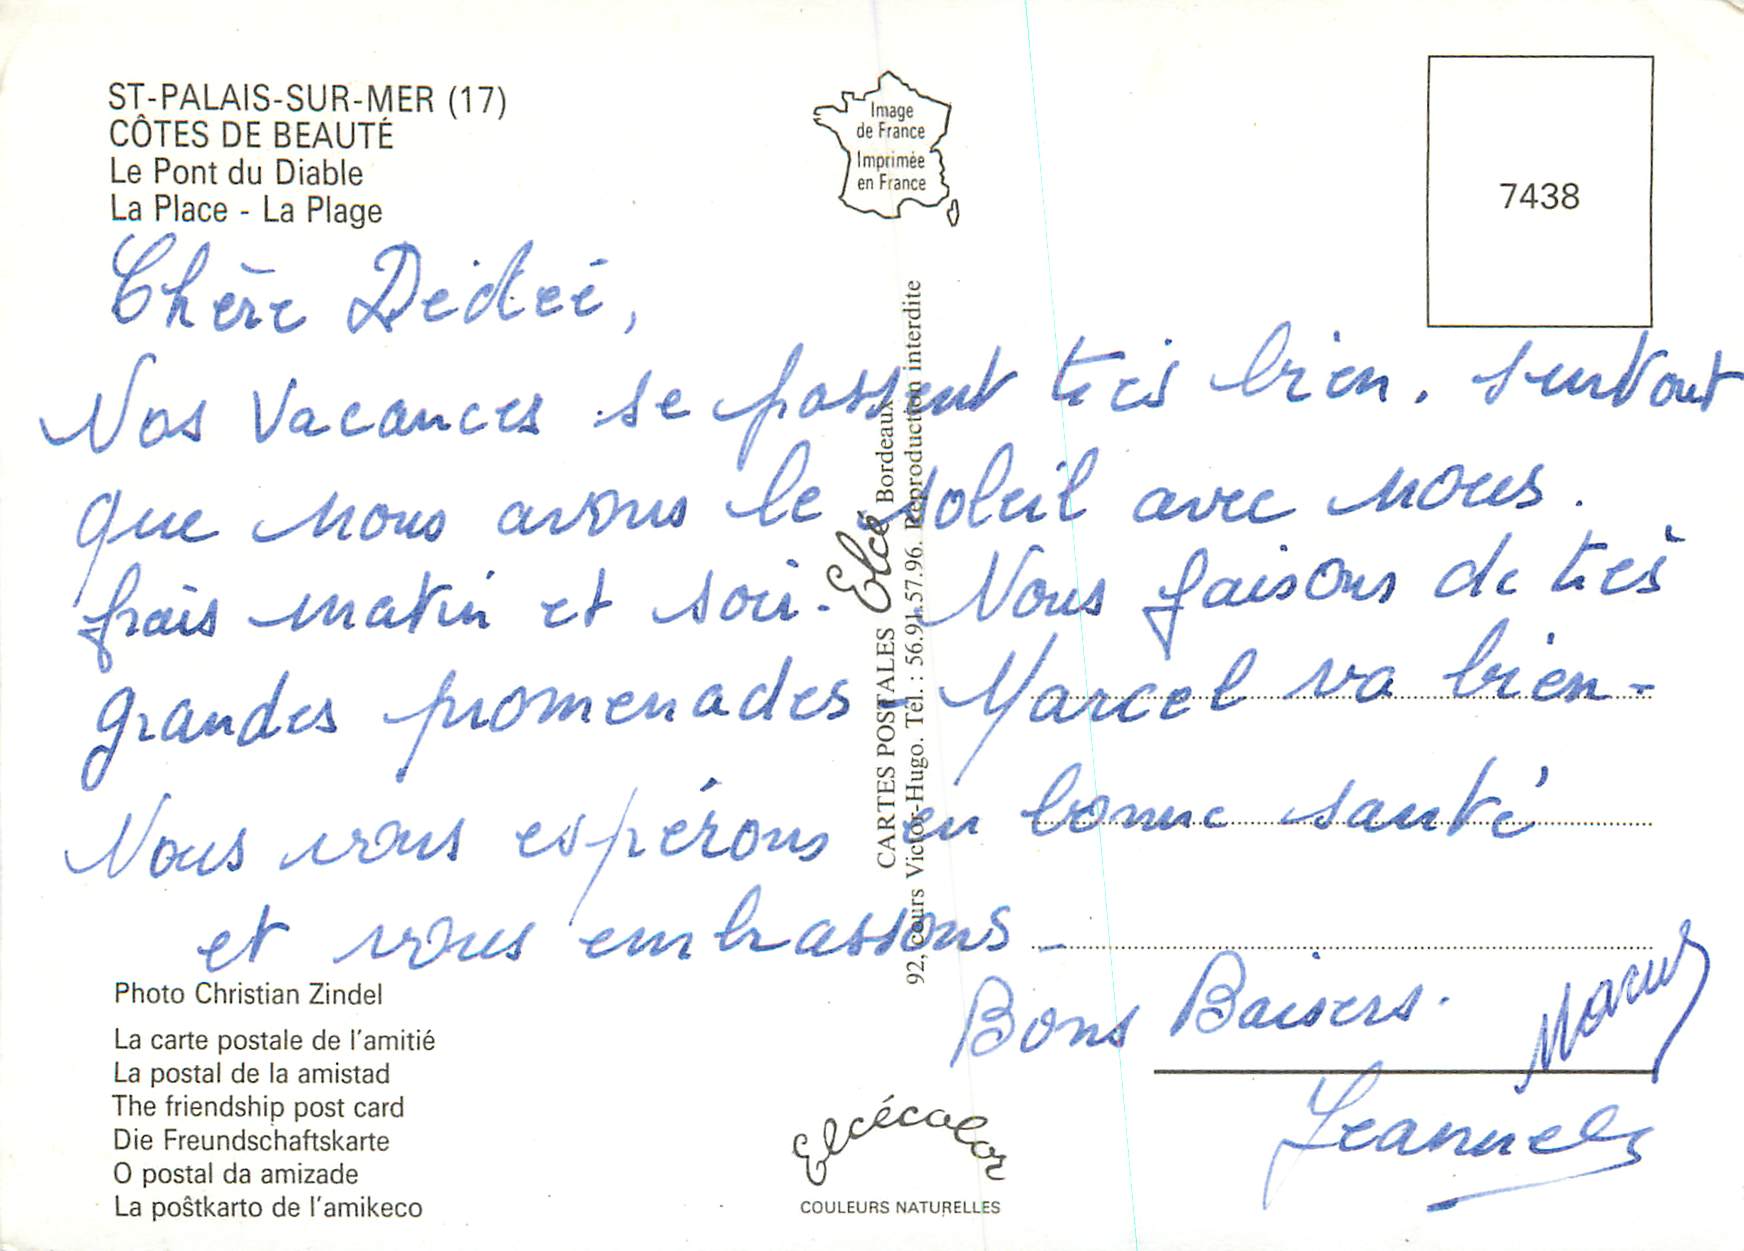 ST-PALAIS-SUR-MER (17)
CÔTES DE BEAUTÉ
Le Pont du Diable
La Place - La Plage
Image
de France
Imprimée
en France
7438
Chère Dédée,
Nos vacances se passent très bien. surtout
que nous avons le soleil avec nous.
frais matin et soir. Nous faisons de très
grandes promenades - Marcel va bien -
Nous vous espérons en bonne santé
et vous embrassons -
Bons Baisers.
Jeanne
CARTES POSTALES Elcé Bordeaux
92, cours Victor-Hugo. Tél. : 56.91.57.96. Reproduction interdite
Photo Christian Zindel
La carte postale de l'amitié
La postal de la amistad
The friendship post card
Die Freundschaftskarte
O postal da amizade
La poŝtkarto de l'amikeco
Elcécolor
COULEURS NATURELLES